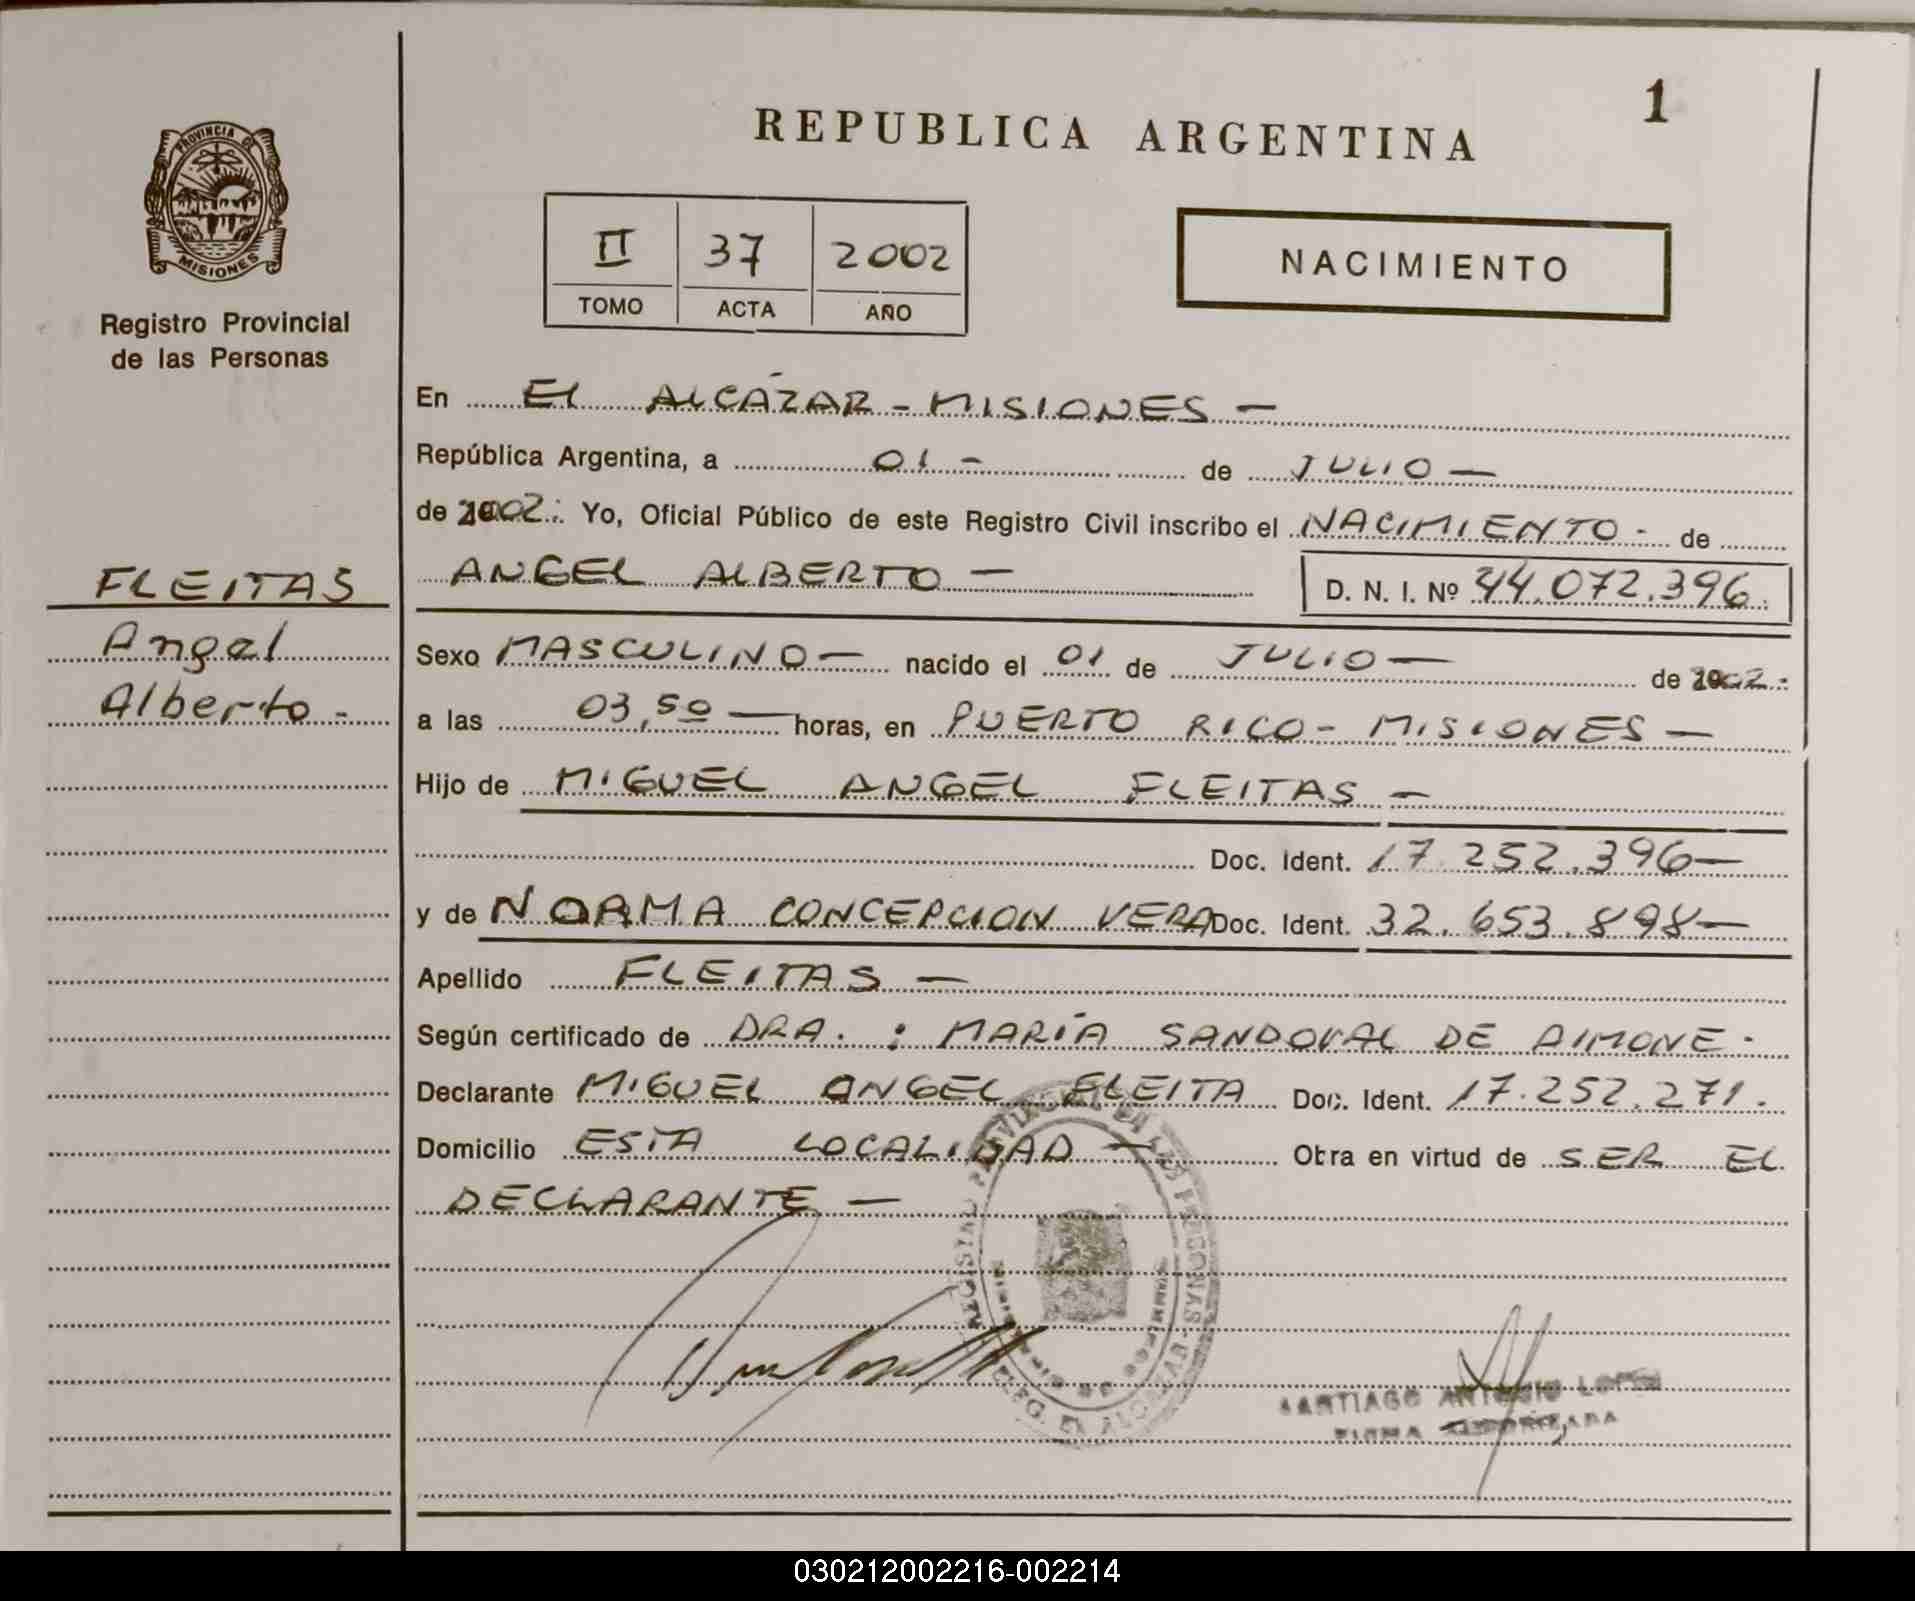 1
REPUBLICA ARGENTINA
PROVINCIA DE
MISIONES
Registro Provincial
de las Personas
II 37 2002
TOMO ACTA AÑO
NACIMIENTO
En El ALCÁZAR - MISIONES -
República Argentina, a 01 - de JULIO -
de 2002. Yo, Oficial Público de este Registro Civil inscribo el NACIMIENTO - de
ANGEL ALBERTO - D. N. I. Nº 44.072.396.
FLEITAS
Angel
Alberto -
Sexo MASCULINO - nacido el 01 de JULIO - de 2002.
a las 03,50 - horas, en PUERTO RICO - MISIONES -
Hijo de MIGUEL ANGEL FLEITAS -
Doc. Ident. 17.252.396-
y de NORMA CONCEPCION VERA Doc. Ident. 32.653.898-
Apellido FLEITAS -
Según certificado de DRA. : MARÍA SANDOVAL DE AIMONE.
Declarante MIGUEL ANGEL FLEITA Doc. Ident. 17.252.271.
Domicilio ESTA LOCALIDAD - Obra en virtud de SER EL
DECLARANTE -
SANTIAGO ANTONIO LOPEZ
FIRMA AUTORIZADA
030212002216-002214